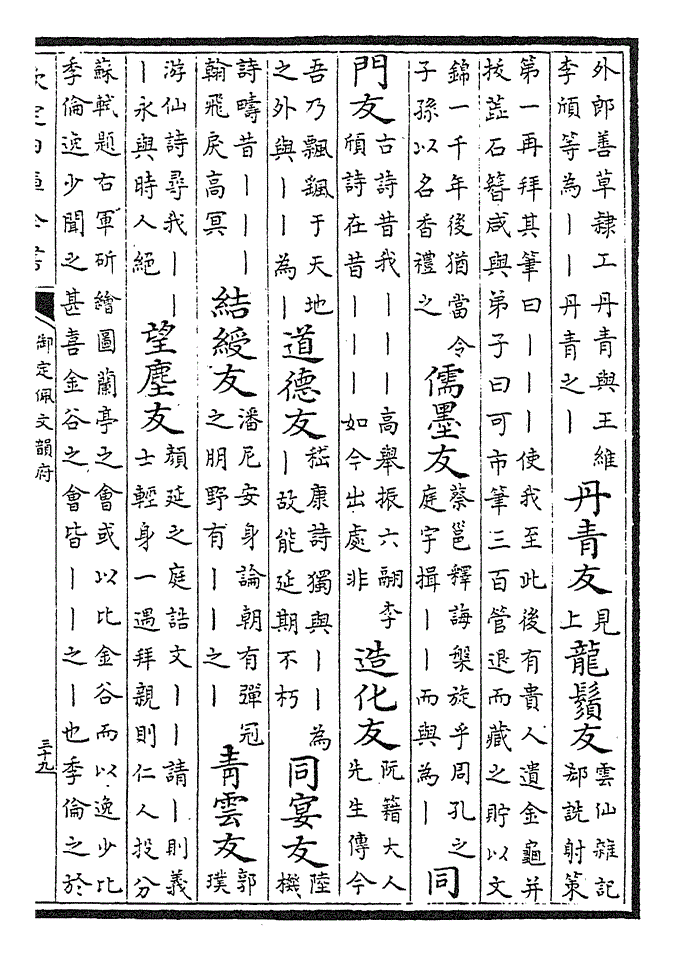 外郎善草隸工丹青與王維
李頎等為丨丨丹青之丨
丹青友
見
上
龍鬚友
雲仙雜記
郄詵射策
第一再拜其筆曰丨丨丨使我至此後有貴人遺金龜并
拔蕋石簪咸與弟子曰可市筆三百管退而藏之貯以文
錦一千年後猶當令
子孫以名香禮之
儒墨友
蔡邕釋誨槃旋乎周孔之
庭宇揖丨丨而與為丨
同
門友
古詩昔我丨丨丨高舉振六翮李
頎詩在昔丨丨丨如今出處非
造化友
阮籍大人
先生傳今
吾乃飄颻于天地
之外與丨丨為丨
道德友
嵇康詩獨與丨丨為
丨故能延期不朽
同宴友
陸
機
詩疇昔丨丨丨
翰飛戾高冥
結綬友
潘尼安身論朝有彈冠
之朋野有丨丨之丨
青雲友
郭
璞
游仙詩尋我丨丨
丨永與時人絕
望塵友
顏延之庭誥文丨丨請丨則義
士輕身一遇拜親則仁人投分
蘇軾題右軍斫繪圖蘭亭之會或以比金谷而以逸少比
季倫逸少聞之甚喜金谷之會皆丨丨之丨也季倫之於
欽定四庫全書
御定佩文韻府
三十九